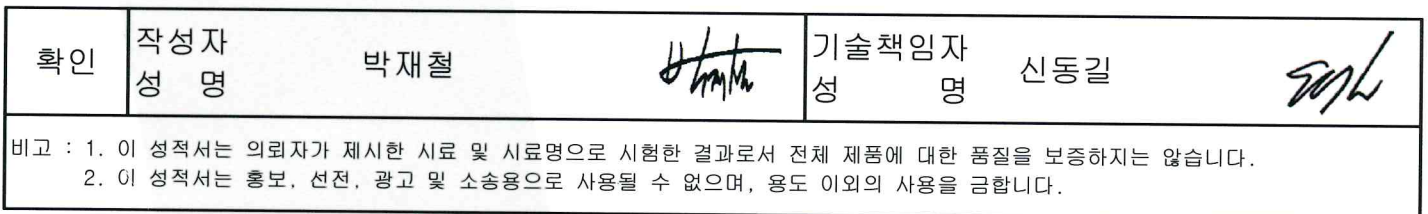 확인
작성자
성 명
박재철
기술책임자
성 명
신동길
비고 : 1. 이 성적서는 의뢰자가 제시한 시료 및 시료명으로 시험한 결과로서 전체 제품에 대한 품질을 보증하지는 않습니다.
2. 이 성적서는 홍보, 선전, 광고 및 소송용으로 사용될 수 없으며, 용도 이외의 사용을 금합니다.